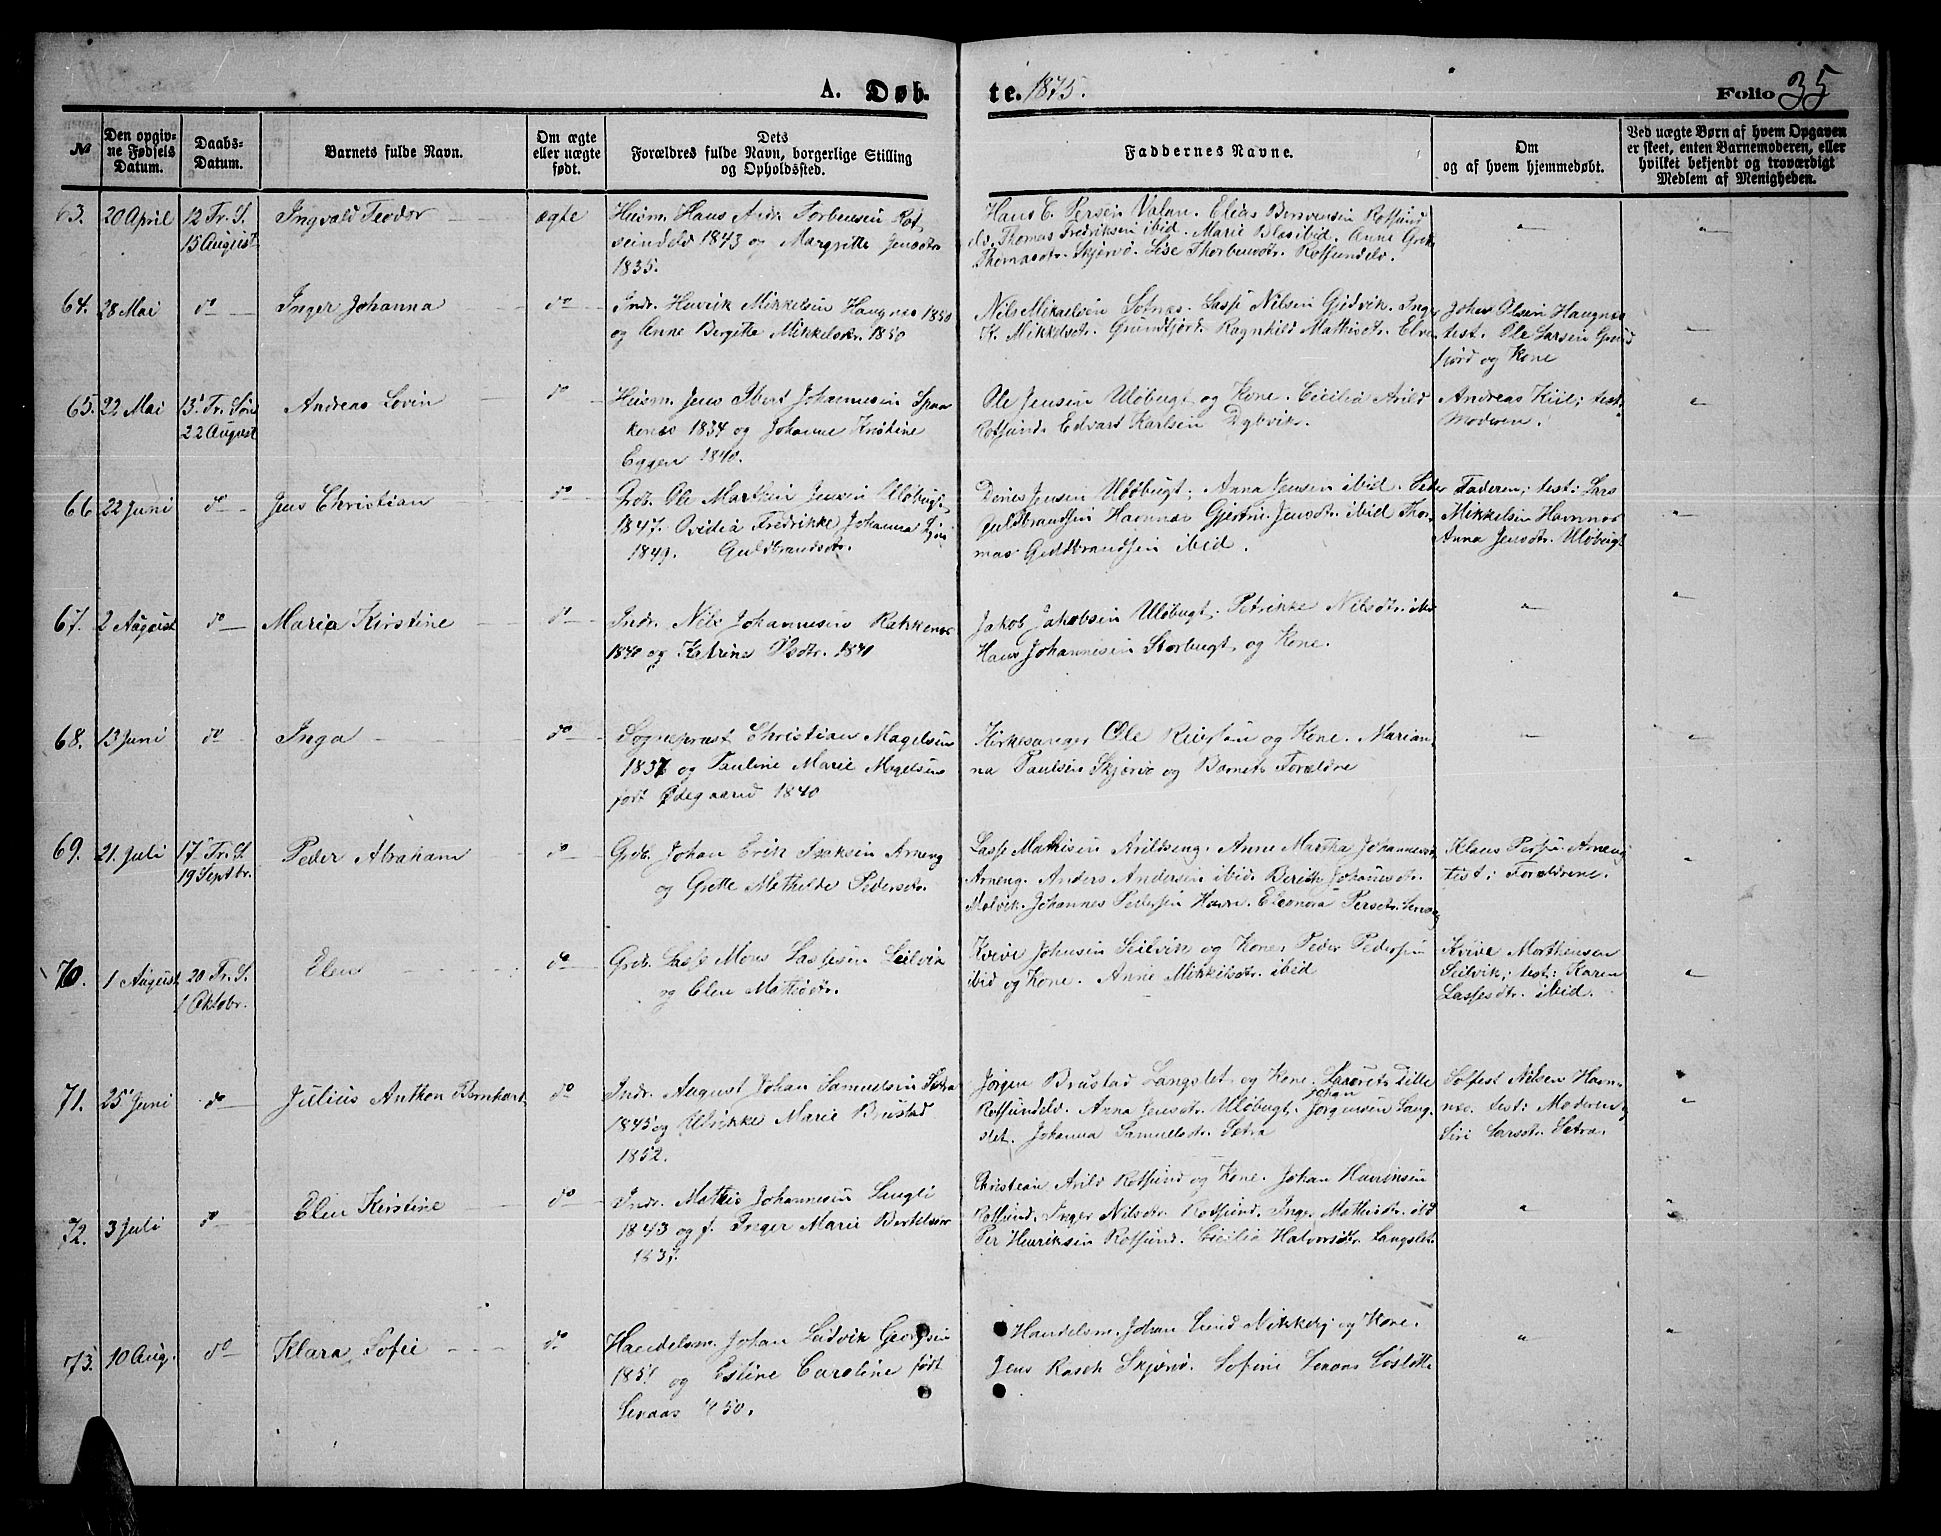 A. Døb-
te. 1875.
Folio 35
№
Den opgiv-
ne Fødsels
Datum.
Daabs-
Datum.
Barnets fulde Navn.
Om ægte
eller uægte
født.
Dets
Forældres fulde Navn, borgerlige Stilling
og Opholdssted.
Faddernes Navne.
Om
og af hvem hjemmedøbt.
Ved uægte Børn af hvem Opgaven
er skeet, enten Barnemoderen, eller
hvilket bekjendt og troværdigt
Medlem af Menigheden.
63. 20 April
12 Tr. S.
15 August
Ingvald Teodor
ægte
Husm. Hans Andr. Torbensen Rot
sundelv 1843 og Margrethe Jensdtr
1835.
Hans C. Persen Valan. Elias Bersvensen Rotsund
elv. Thomas Fredriksen ibid. Marie Blas ibid. Anne Grete
Thomasdtr. Skjervø. Lise Thorbensdtr. Rotsundelv.
64. 28 Mai
do
Inger Johanna
do
Indr. Henrik Mikkelsen Haugnæs 1850
og Anne Bergitte Mikkelsdtr. 1850
Nils Mikaelsen Sotnæs. Lasse Nilsen Gjøvik. Inger
K. Mikkelsdtr. Grundfjord. Ragnhild Mathisdtr. Elve
Johan Olsen Haugnæs
test. Ole Larsen Grund
fjord og Kone
65. 22 Mai
13 Tr. Søn
22 August
Andreas Lovin
do
Husm. Jens Ibert Johannesen Spaa
kenæs 1834 og Johanne Kristine
Eggen 1840.
Ole Jensen Uløbugt og Kone. Cicilia Arild
Rotsund. Edvart Karlsen Dybvik.
Andreas Kiil; test:
Moderen.
66 22 Juni
do
Jens Christian
do
Grdb. Ole Martin Jensen Uløbugt
1847. Ovidia Fredrikke Johanna
1849. Guldbrandsdtr.
Dines Jensen Uløbugt; Anna Jensen ibid. Peder
Guldbrandsen Havnnæs Gjertru Jensdtr. ibid Tho
mas Guldbrandsen ibid.
Faderen; test: Lars
Mikkelsen Havnnæs
Anna Jensdtr. Uløbugt
67. 2 August
do
Maria Kirstine
do
Indr. Nils Johannesen Rakkenæs
1840 og Katrine Olsdtr. 1840
Jakob Jakobsen Uløbugt; Petrikke Nilsdtr. ibid
Hans Johannesen Storbugt og Kone.
68. 13 Juni
do
Inga
do
Sognepræst Christian Magelsen
1837 og Pauline Marie Magelsen
født Ødegaard 1840
Kirkesanger Ole Reiersen og Kone. Marian-
na Paulsen Skjervø og Barnets Forældre
69. 21. Juli
17 Tr. S.
19 Septbr.
Peder Abraham
do
Grdb. Johan Erik Isaksen Arneng
og Grette Mathilde Pedersdtr.
Lasse Mathisen Arildseng. Anne Martha Johannesdtr
Arneng. Anders Andersen ibid. Berith Johannesdtr.
Molvik. Johannes Pedersen Havn. Eleonora Persdtr.
Klaus Persen Arneng
test: Forældrene.
70. 1 August
20 Tr. S.
1 Oktobr.
Elen
do
Grdb. Lasse Mons Lassesen Seilvik
og Elen Mathisdtr.
Kvive Johnsen Seilvik og Kone. Peder Pedersen
ibid og Kone. Anne Mikkelsdtr. ibid
Kvive Morthensen
Seilvik; test: Karen
Lassesdtr. ibid.
71. 25 Juni
do
Julius Anthon Bernhart
do
Indr. August Johan Samuelsen Sætra
1845 og Ulrikke Marie Brustad
1852.
Jørgen Brustad Langslet og Kone. Laurets Tille
Rotsundelv. Anna Jensdtr. Uløbugt. Johan Jørgensen Lang-
slet. Johanna Samuelsdtr. Sætra
Solfest Nilsen Havn-
næs. test: Moderen og
Siri Larsdtr. Sætra.
72. 3 Juli
do
Elen Kirstine
do
Indr. Mathis Johannesen Langli
1843 og f. Inger Marie Bertelsdtr
1837.
Christian Arild Rotsund og Kone. Johan Henriksen
Rotsund. Inger Nilsdtr. Rotsund. Inger Mathisdtr. ibid
Per Henriksen Rotsund. Cicilia Halvorsdtr. Langslet.
73. 10 Aug.
do
Klara Sofie
do
Handelsm. Johan Ludvik Georgsen
1851 og Esline Caroline født
Lenaas 1850.
Handelsm. Johan Lund Nikkeby og Kone.
Jens Rasch Skjervø. Sofine Lenaas